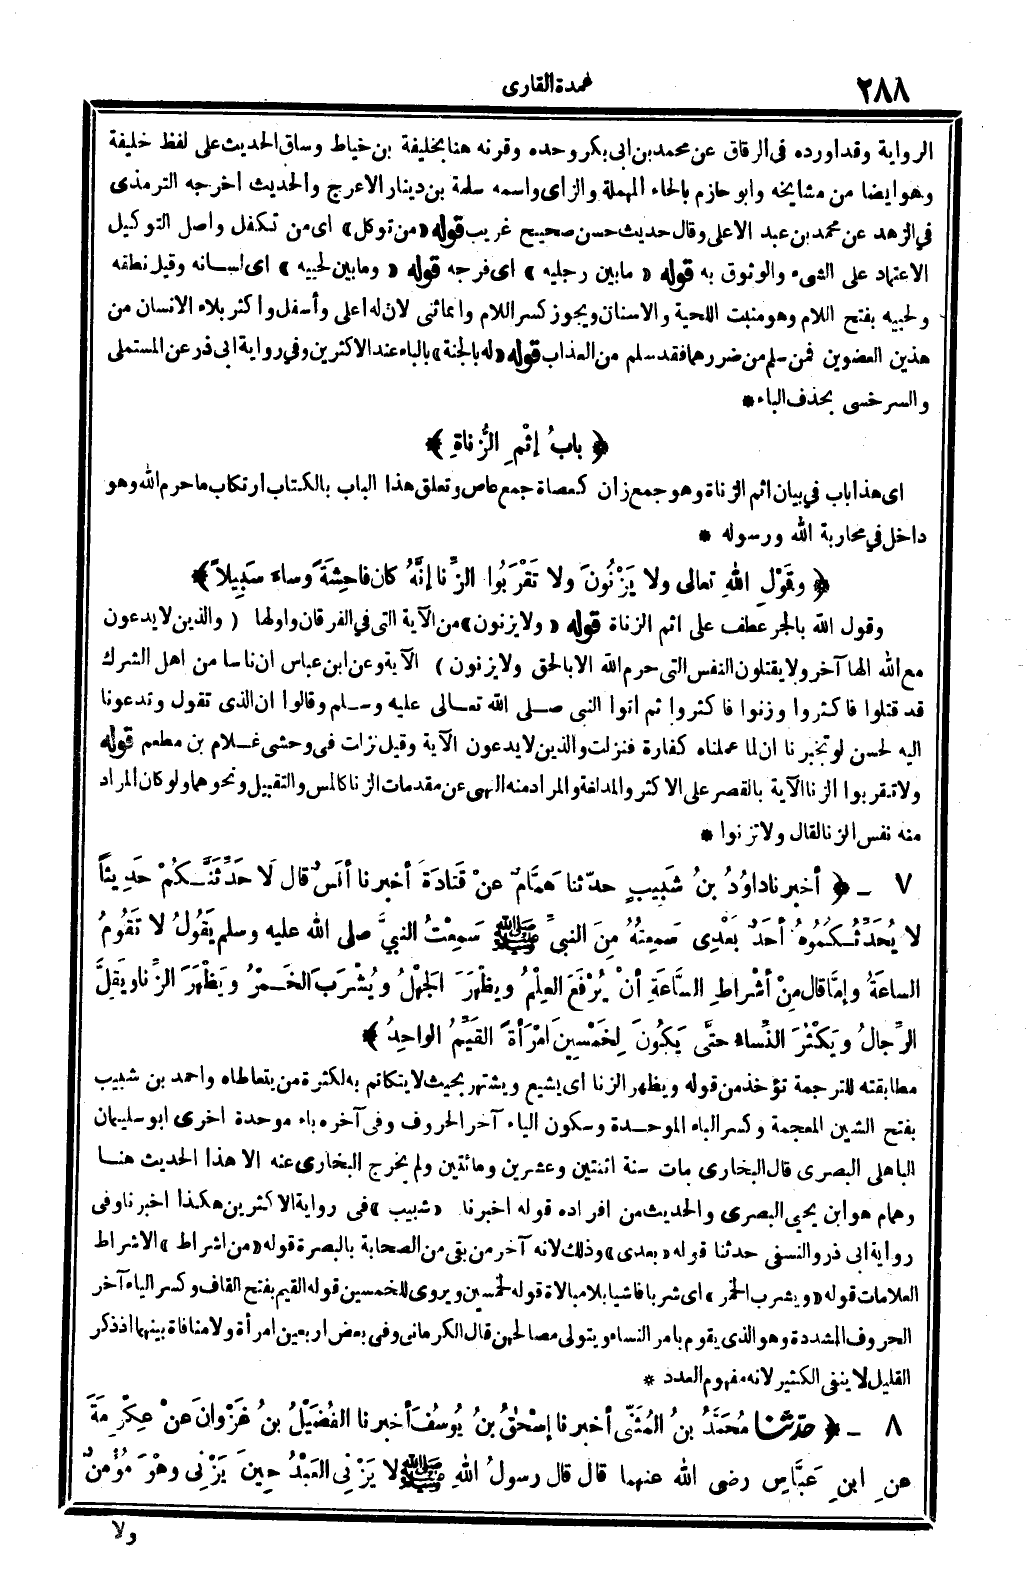 ٢٨٨
عمدة القارى
الرواية وقد اورده فى الرقاق عن محمد بن ابى بكر وحده وقرنه هنا بخليفة بن خياط وساق الحديث على لفظ خليفة
وهو ايضا من مشايخه وابو حازم بالحاء المهملة والزاى واسمه سلمة بن دينار الاعرج والحديث اخرجه الترمذى
فى الزهد عن محمد بن عبد الاعلى وقال حديث حسن صحيح غريب قوله «من توكل» اى من تكفل واصل التوكيل
الاعتماد على الشىء والوثوق به قوله « مابين رجليه » اى فرجه قوله « ومابين لحييه » اى لسانه وقيل نطقه
ولحييه بفتح اللام وهو منبت اللحية والاسنان ويجوز كسر اللام وانما ثنى لان له اعلى وأسفل واكثر بلاء الانسان من
هذين العضوين فمن سلم من ضررهما فقد سلم من العذاب قوله «له بالجنة» بالباء عند الاكثرين وفى رواية ابى ذر عن المستملى
والسرخسى بحذف الباء *
﴿ بابُ إثْمِ الزُّناةِ ﴾
اى هذا باب فى بيان اثم الزناة وهو جمع زان كعصاة جمع عاص وتعلق هذا الباب بالكتاب ارتكاب ما حرم الله وهو
داخل فى محاربة الله ورسوله *
﴿ وقَوْلِ اللهِ تعالى ولا يَزْنُونَ ولا تَقْرَبُوا الزِّنا إنَّهُ كان فاحِشَةً وساءَ سَبِيلاً ﴾
وقول الله بالجر عطف على اثم الزناة قوله « ولا يزنون» من الآية التى فى الفرقان واولها ( والذين لا يدعون
مع الله الها آخر ولا يقتلون النفس التى حرم الله الا بالحق ولا يزنون ) الآية وعن ابن عباس ان ناسا من اهل الشرك
قد قتلوا فاكثروا وزنوا فاكثروا ثم اتوا النبى صلى الله تعالى عليه وسلم وقالوا ان الذى تقول وتدعونا
اليه لحسن لو تخبرنا ان لما عملناه كفارة فنزلت والذين لا يدعون الآية وقيل نزلت فى وحشى غلام بن مطعم قوله
ولا تقربوا الزنا الآية بالقصر على الاكثر والمد لغة والمراد منه النهى عن مقدمات الزنا كالمس والتقبيل ونحوهما ولو كان المراد
منه نفس الزنا لقال ولا تزنوا *
٧ ـ ﴿ أخبرنا داوُدُ بنُ شَبِيبٍ حدّثنا هَمَّامٌ عنْ قَتادَةَ أخبرنا أنَسٌ قال لَا حَدِّثَنَّكُمْ حَدِيثاً
لا يُحَدِّثُكُمُوهُ أحَدٌ بَعْدِى سَمِعْتُهُ مِنَ النبيِّ ﷺ سَمِعْتُ النبيَّ صلى الله عليه وسلم يَقُولُ لا تَقُومُ
الساعَةُ وإمَّا قال مِنْ أشْراطِ السَّاعَةِ أنْ يُرْفَعَ العِلْمُ ويظْهَرَ الجَهْلُ ويُشْرَبَ الخَمْرُ ويَظْهَرَ الزِّنا ويَقِلَّ
الرِّجالُ ويَكْثُرَ النِّساءُ حتَّى يَكُونَ لِخَمْسِينَ امْرَأةً القَيِّمُ الواحِدُ ﴾
مطابقته للترجمة تؤخذ من قوله ويظهر الزنا اى يشيع ويشتهر بحيث لا يتكاتم به لكثرة من يتعاطاه واحمد بن شبيب
بفتح الشين المعجمة وكسر الباء الموحدة وسكون الياء آخر الحروف وفى آخره باء موحدة اخرى ابو سليمان
الباهلى البصرى قال البخارى مات سنة اثنتين وعشرين ومائتين ولم يخرج البخارى عنه الا هذا الحديث هنا
وهمام هو ابن يحيى البصرى والحديث من افراده قوله اخبرنا «شبيب» فى رواية الاكثرين هكذا اخبرنا وفى
رواية ابى ذر والنسفى حدثنا قوله «بعدى» وذلك لانه آخر من بقى من الصحابة بالبصرة قوله «من اشراط » الاشراط
العلامات قوله «ويشرب الخمر» اى شربا فاشيا بلا مبالاة قوله لخمسين ويروى للخمسين قوله القيم بفتح القاف وكسر الياء آخر
الحروف المشددة وهو الذى يقوم بامر النساء ويتولى مصالحهن قال الكرمانى وفى بعض اربعين امرأة ولا منافاة بينهما اذ ذكر
القليل لا ينفى الكثير لانه مفهوم العدد *
٨ ـ ﴿ حدّثنا مُحَمَّدُ بنُ المُثَنَّى أخبرنا إسْحٰقُ بنُ يُوسُفَ أخبرنا الفُضَيْلُ بنُ غَزْوانَ عَنْ عِكْرِمَةَ
عنِ ابنِ عَبَّاسٍ رضى الله عنهما قال قال رسولُ اللهِ ﷺ لا يَزْنِى العَبْدُ حِينَ يَزْنِى وهْوَ مُؤْمِنٌ
ولا